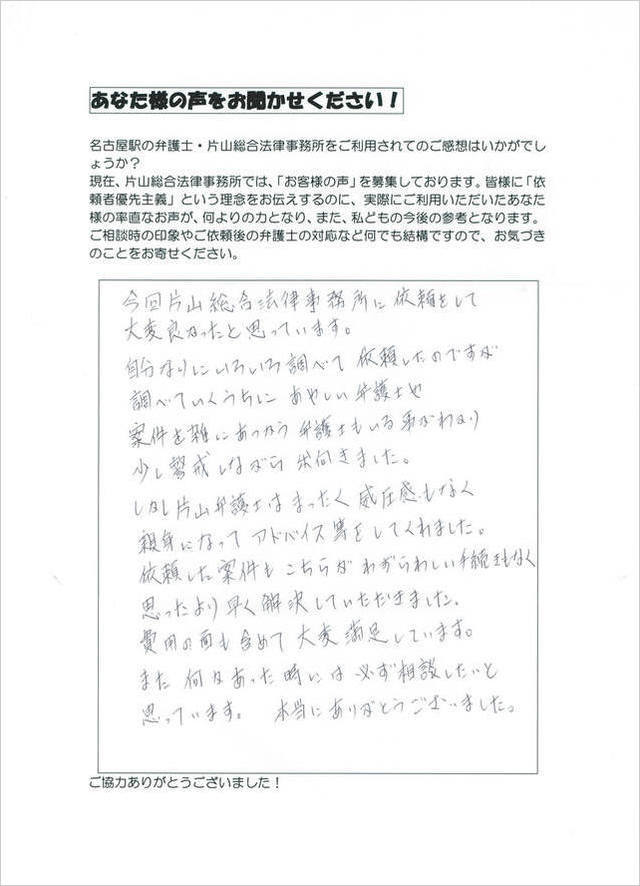 あなた様の声をお聞かせください！
名古屋駅の弁護士・片山総合法律事務所をご利用されてのご感想はいかがでし
ょうか？
現在、片山総合法律事務所では、「お客様の声」を募集しております。皆様に「依
頼者優先主義」という理念をお伝えするのに、実際にご利用いただいたあなた
様の率直なお声が、何よりの力となり、また、私どもの今後の参考となります。
ご相談時の印象やご依頼後の弁護士の対応など何でも結構ですので、お気づき
のことをお寄せください。
今回片山総合法律事務所に依頼をして
大変良かったと思っています。
自分なりにいろいろ調べて依頼したのですが
調べていくうちに あやしい弁護士や
案件を雑にあつかう弁護士もいる事がわかり
少し警戒しながら出向きました。
しかし片山弁護士はまったく威圧感もなく
親身になってアドバイス等をしてくれました。
依頼した案件もこちらがわずらわしい手続きもなく
思ったより早く解決していただきました。
費用の面も含めて大変満足しています。
また何かあった時には必ず相談したいと
思っています。 本当にありがとうございました。
ご協力ありがとうございました！